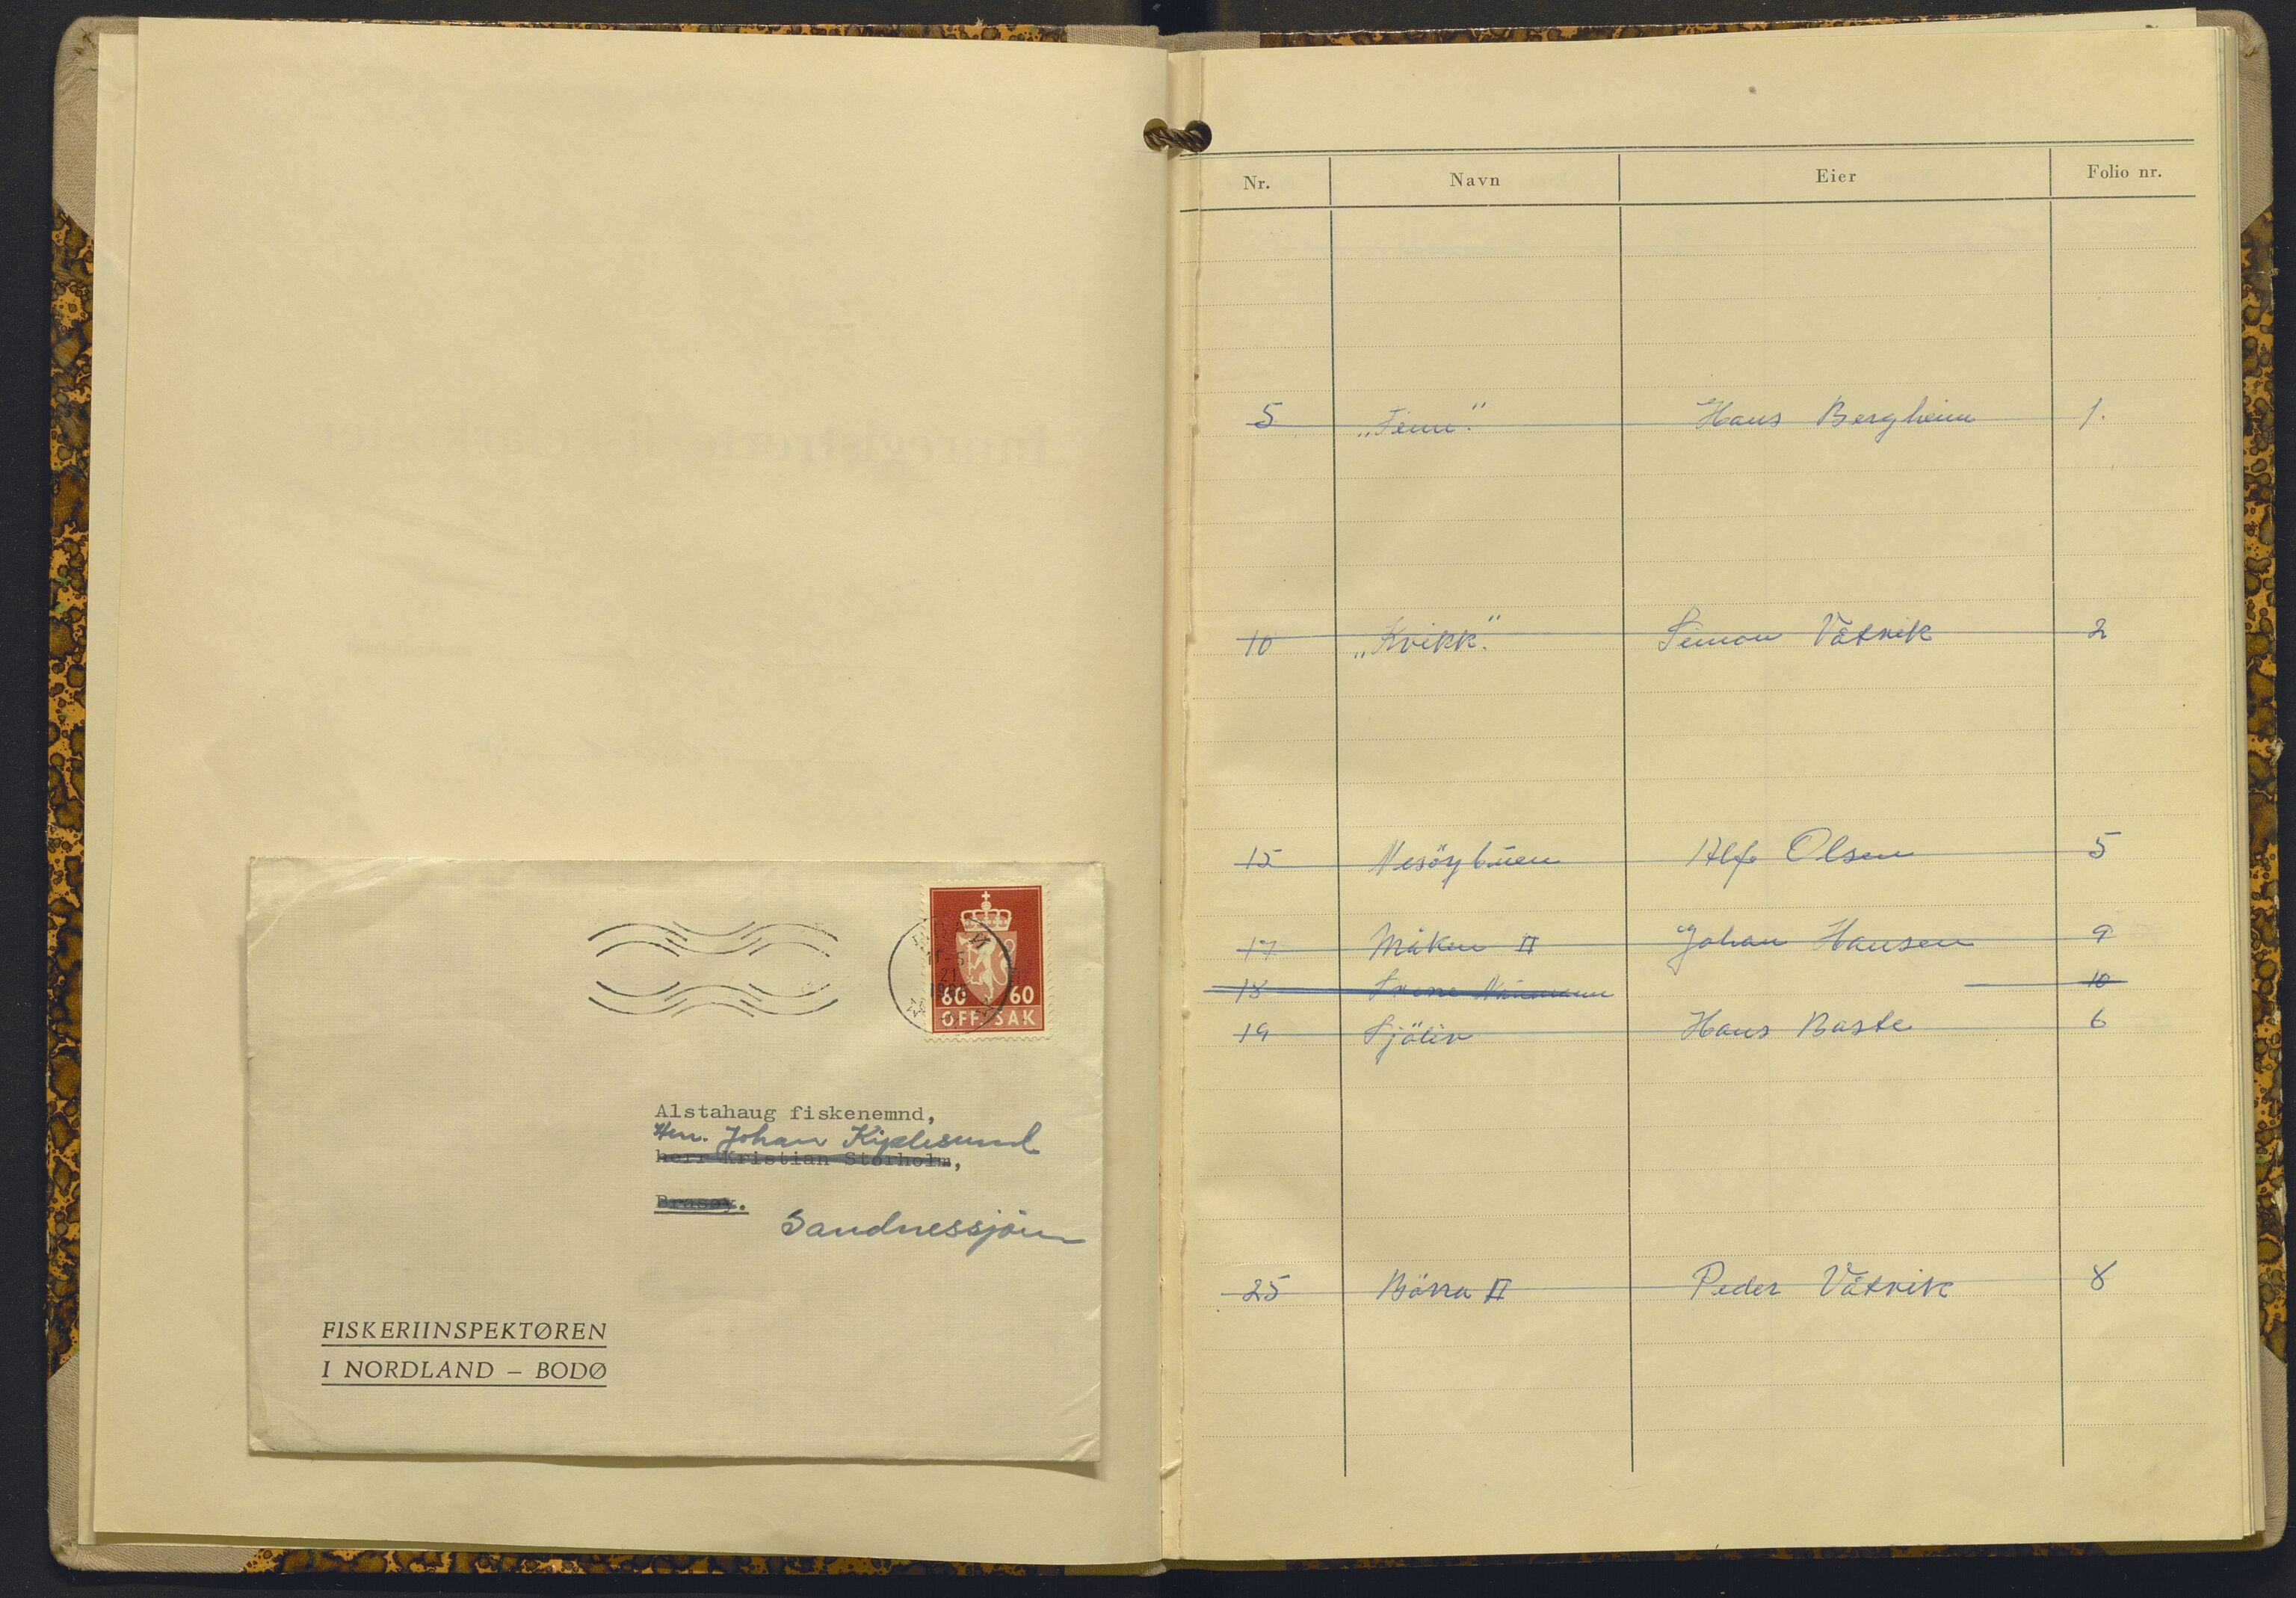 60 60
OFF. SAK
Alstahaug fiskenemnd,
Herr. Johan Kiplesund
herr Kristian Storholm,
Brasøy.
Sandnessjöen
FISKERIINSPEKTØREN
I NORDLAND – BODØ
Nr. Navn Eier Folio nr.
5 „Finn“. Hans Bergheim 1.
10 „Kvikk“. Simon Våtvik 2
15 Nesöybuen Alf Olsen 5
17 Måken II Johan Hansen 9
18 10
19 Sjöliv Hans Baste 6
25 Bårra II Peder Våtvik 8